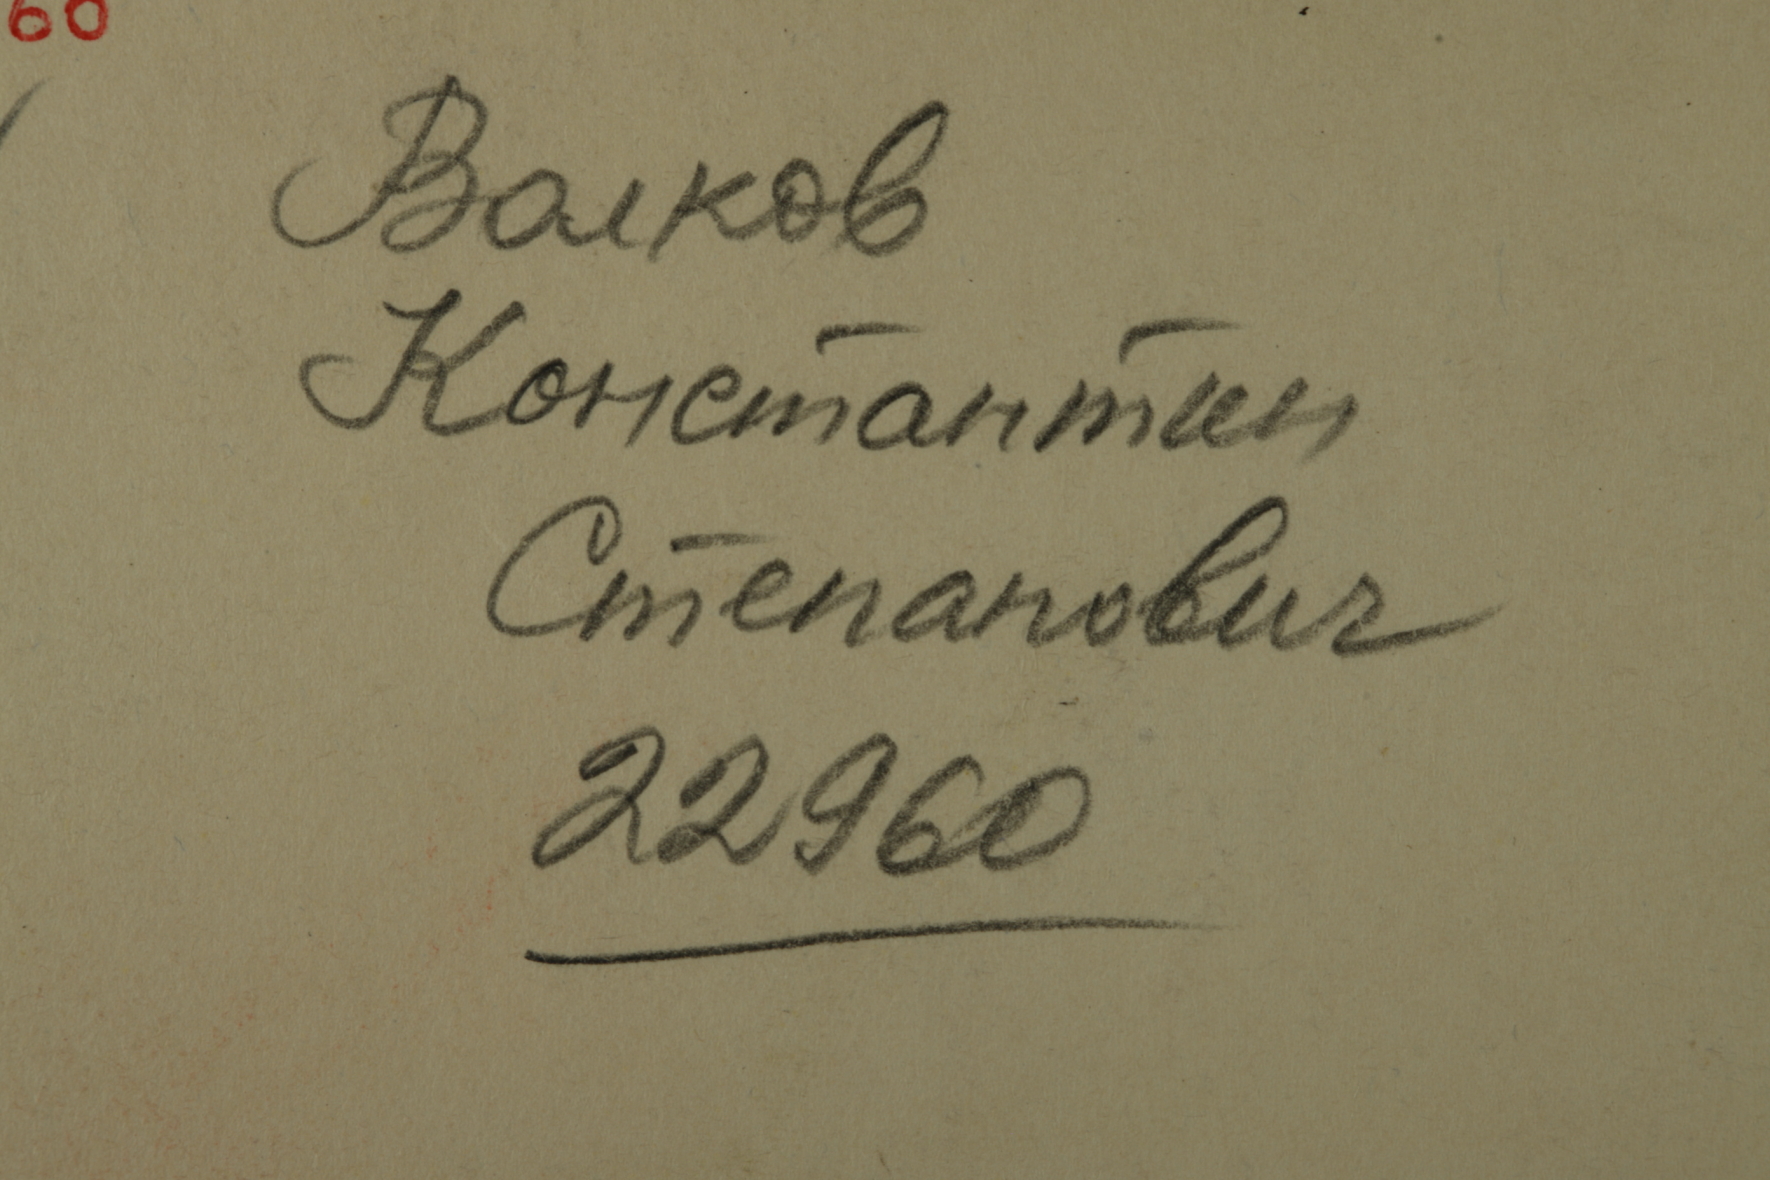 60
Волков
Константин
Степанович
22960